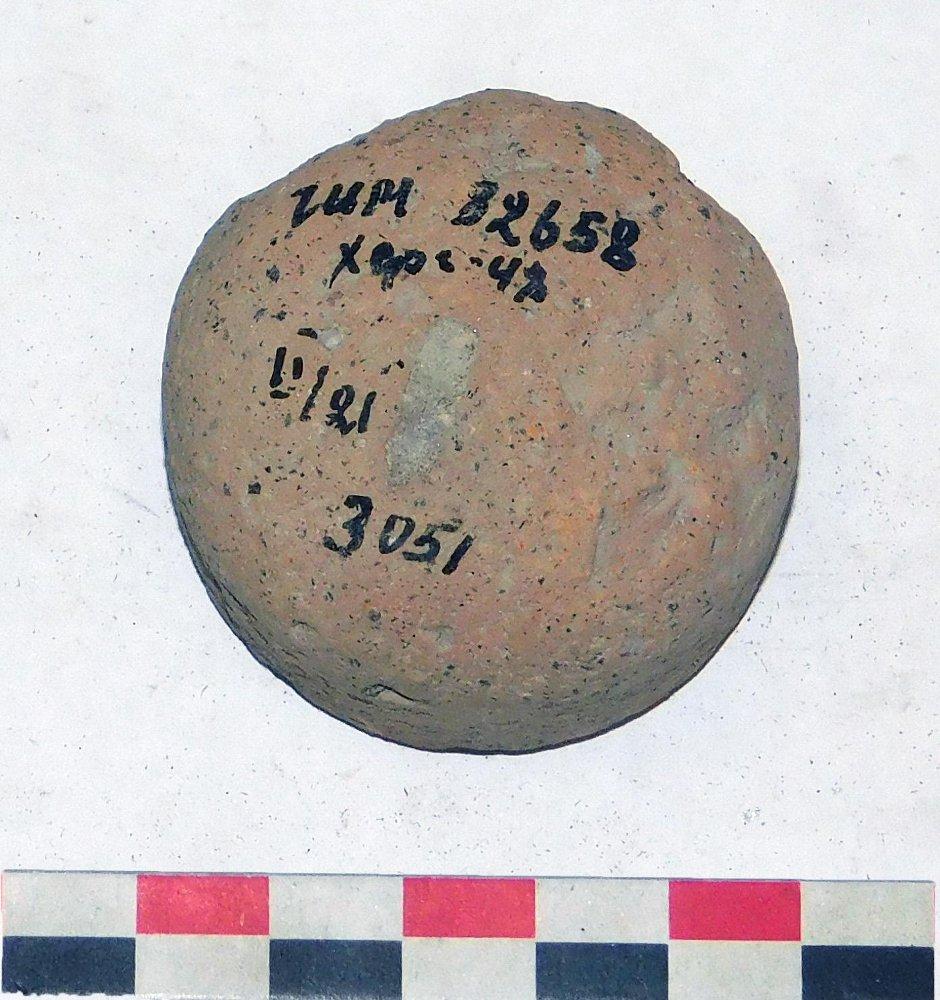 ГИМ 82658
Херс-47
II/21
3051